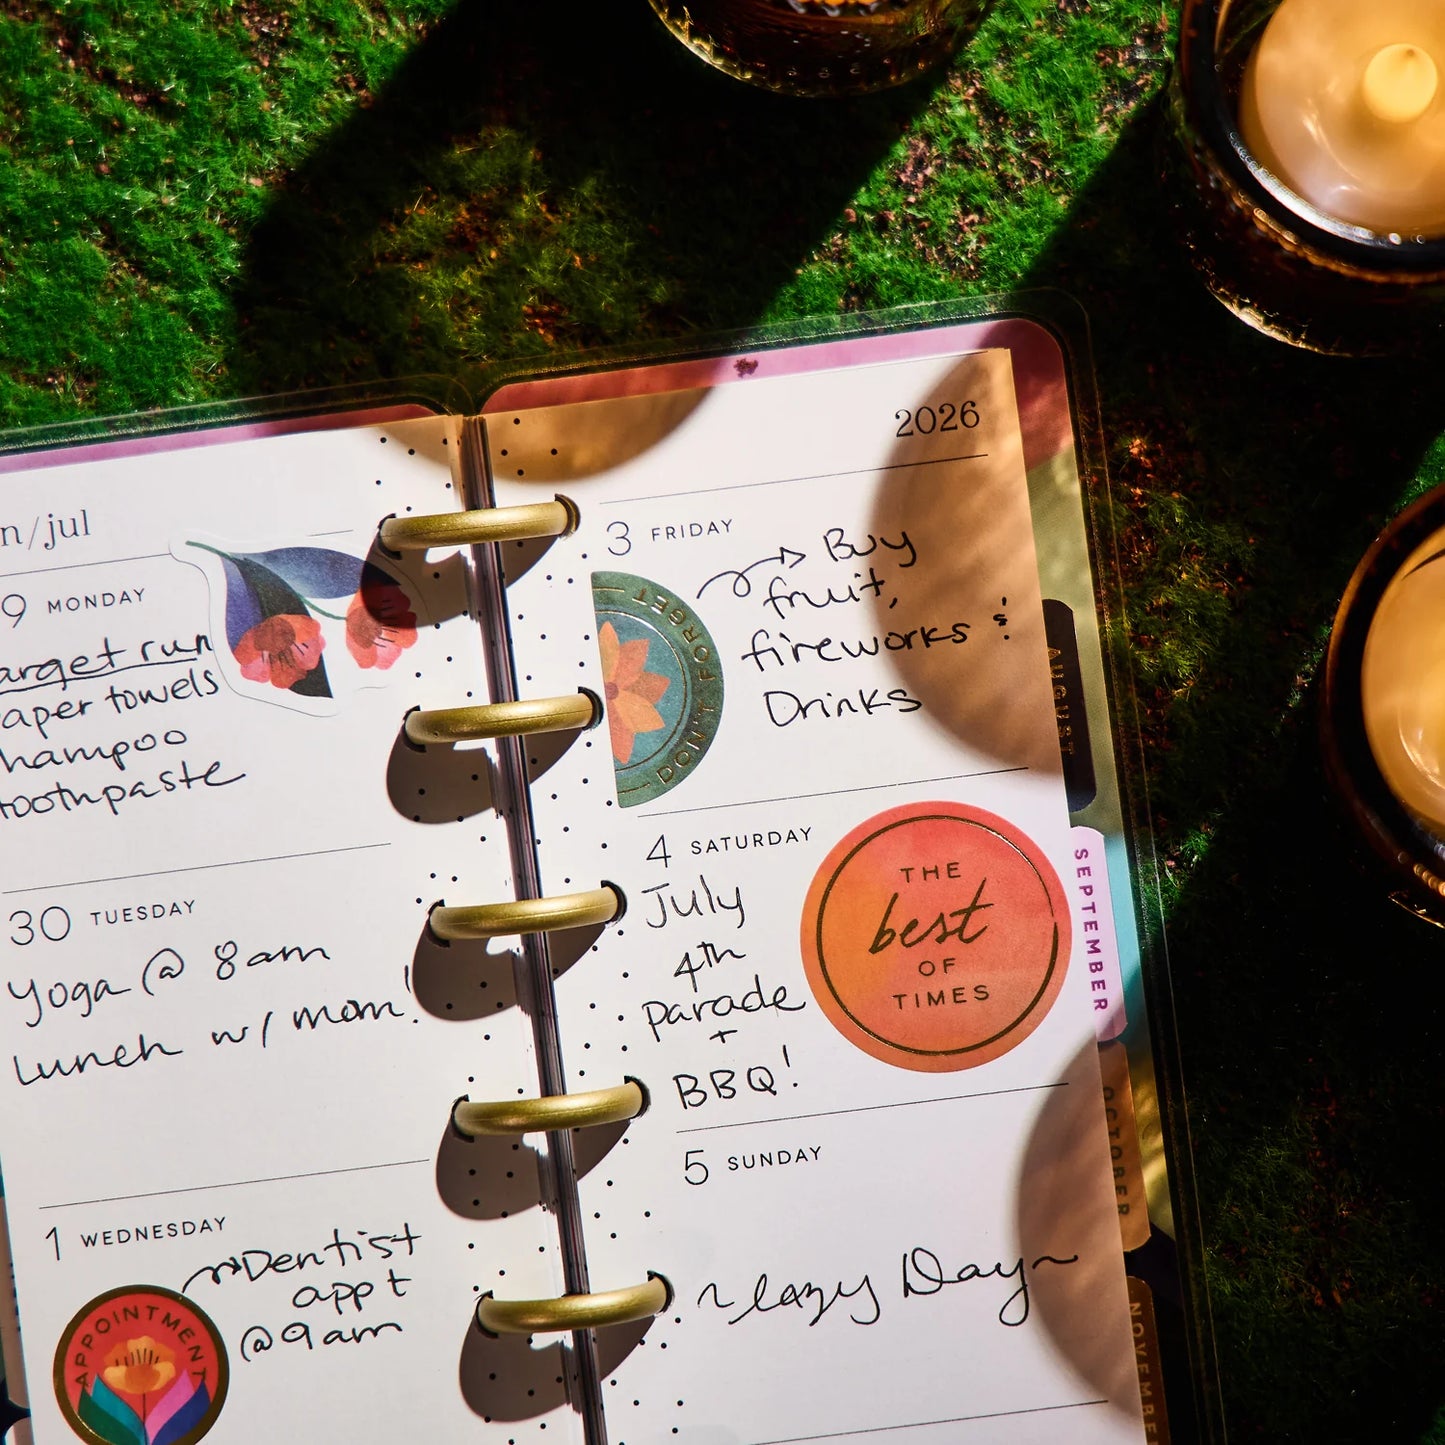 n/jul
9 MONDAY
arget run
aper towels
hampoo
toothpaste
30 TUESDAY
Yoga @ 8am
Lunch w/ mom!
1 WEDNESDAY
Dentist
appt
@9am
APPOINTMENT
2026
3 FRIDAY
Buy
fruit,
fireworks &
Drinks
DON'T FORGET
4 SATURDAY
July
4th
Parade
+
BBQ!
THE
best
OF
TIMES
5 SUNDAY
~Lazy Day~
AUGUST
SEPTEMBER
OCTOBER
NOVEMBE